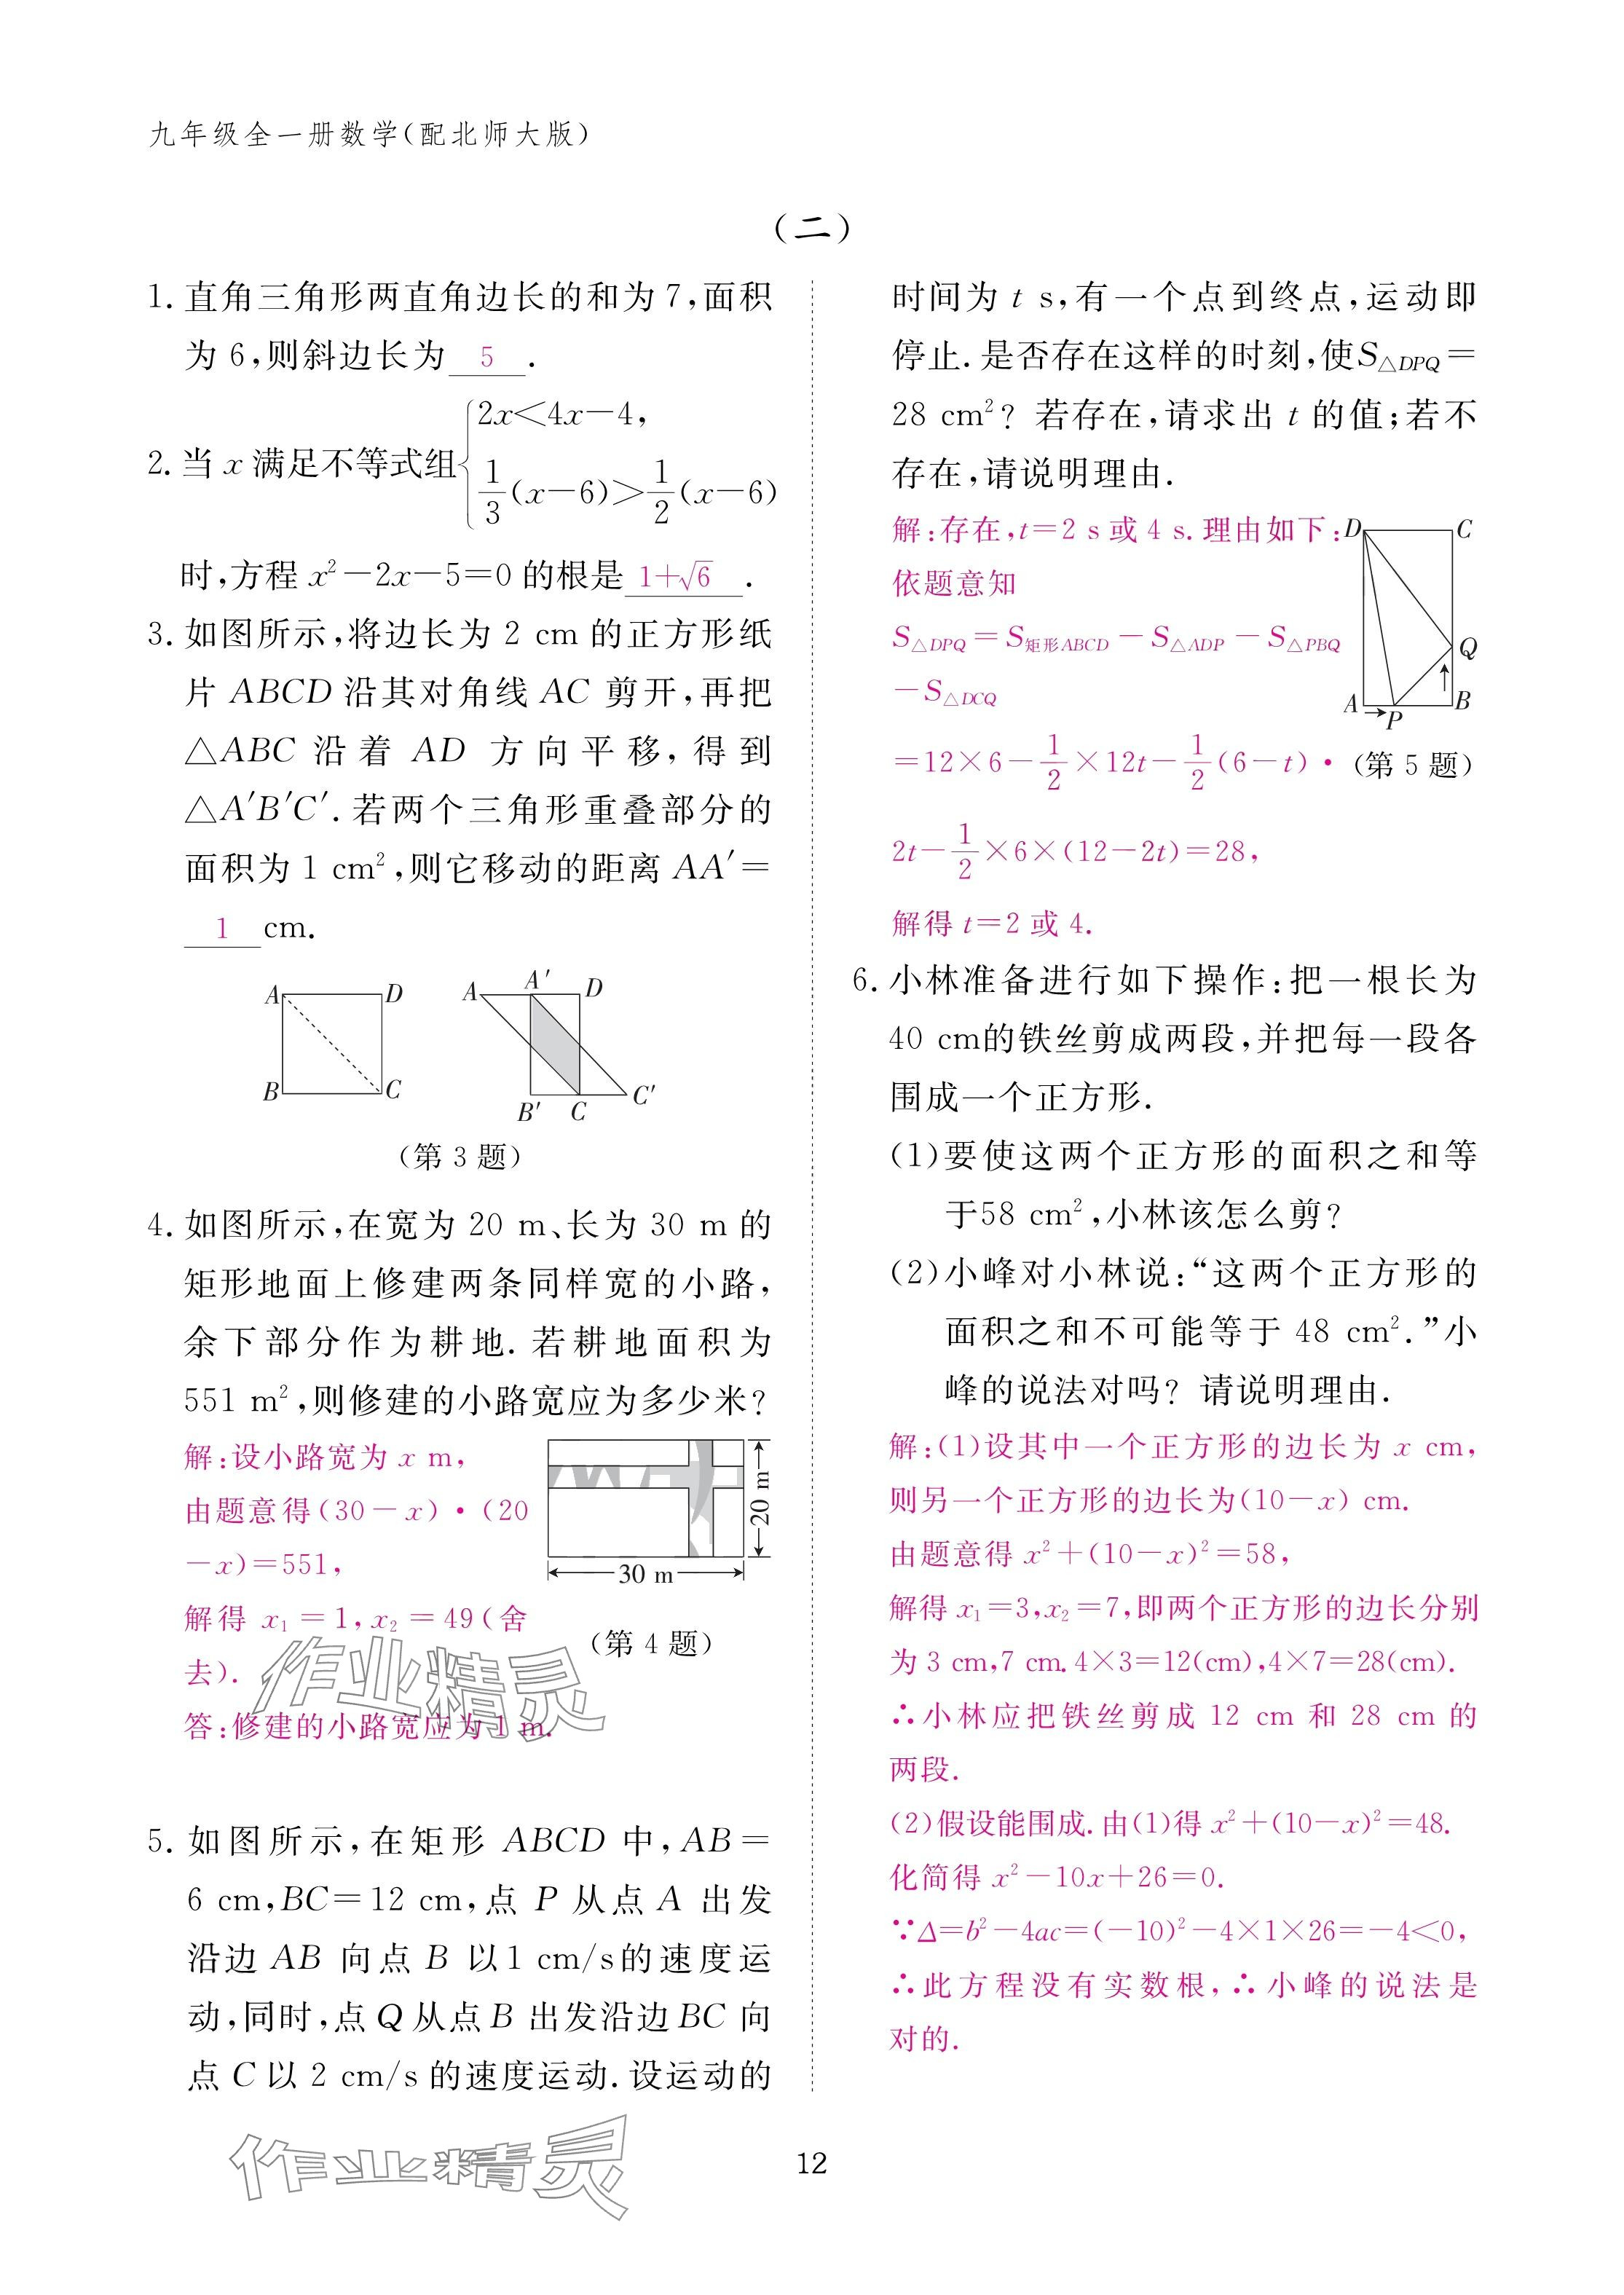 九年级全一册数学(配北师大版)
(二)
1. 直角三角形两直角边长的和为7,面积
为6,则斜边长为 5 .
2. 当 x 满足不等式组{2x<4x−4,
1/3(x−6)>1/2(x−6)
时,方程 x²−2x−5=0 的根是 1+√6 .
3. 如图所示,将边长为 2 cm 的正方形纸
片 ABCD 沿其对角线 AC 剪开,再把
△ABC 沿着 AD 方向平移,得到
△A′B′C′.若两个三角形重叠部分的
面积为 1 cm²,则它移动的距离 AA′=
1 cm.
A D B C
A A′ D B′ C C′
(第 3 题)
4. 如图所示,在宽为 20 m、长为 30 m 的
矩形地面上修建两条同样宽的小路,
余下部分作为耕地. 若耕地面积为
551 m²,则修建的小路宽应为多少米?
解:设小路宽为 x m,
由题意得(30−x)·(20
−x)=551,
解得 x₁=1,x₂=49(舍
去).
答:修建的小路宽应为 1 m.
20 m
30 m
(第 4 题)
作业精灵
5. 如图所示,在矩形 ABCD 中,AB=
6 cm,BC=12 cm,点 P 从点 A 出发
沿边 AB 向点 B 以1 cm/s的速度运
动,同时,点 Q 从点 B 出发沿边 BC 向
点 C 以 2 cm/s 的速度运动.设运动的
时间为 t s,有一个点到终点,运动即
停止.是否存在这样的时刻,使S△DPQ=
28 cm²? 若存在,请求出 t 的值;若不
存在,请说明理由.
解:存在,t=2 s 或 4 s. 理由如下:
依题意知
S△DPQ=S矩形ABCD−S△ADP−S△PBQ
−S△DCQ
=12×6−1/2×12t−1/2(6−t)·
2t−1/2×6×(12−2t)=28,
解得 t=2 或 4.
D C Q A P B
(第 5 题)
6. 小林准备进行如下操作:把一根长为
40 cm的铁丝剪成两段,并把每一段各
围成一个正方形.
(1)要使这两个正方形的面积之和等
于58 cm²,小林该怎么剪?
(2)小峰对小林说:“这两个正方形的
面积之和不可能等于 48 cm².”小
峰的说法对吗? 请说明理由.
解:(1)设其中一个正方形的边长为 x cm,
则另一个正方形的边长为(10−x) cm.
由题意得 x²+(10−x)²=58,
解得 x₁=3,x₂=7,即两个正方形的边长分别
为 3 cm,7 cm. 4×3=12(cm),4×7=28(cm).
∴小林应把铁丝剪成 12 cm 和 28 cm 的
两段.
(2)假设能围成.由(1)得 x²+(10−x)²=48.
化简得 x²−10x+26=0.
∵Δ=b²−4ac=(−10)²−4×1×26=−4<0,
∴此方程没有实数根,∴小峰的说法是
对的.
作业精灵
12